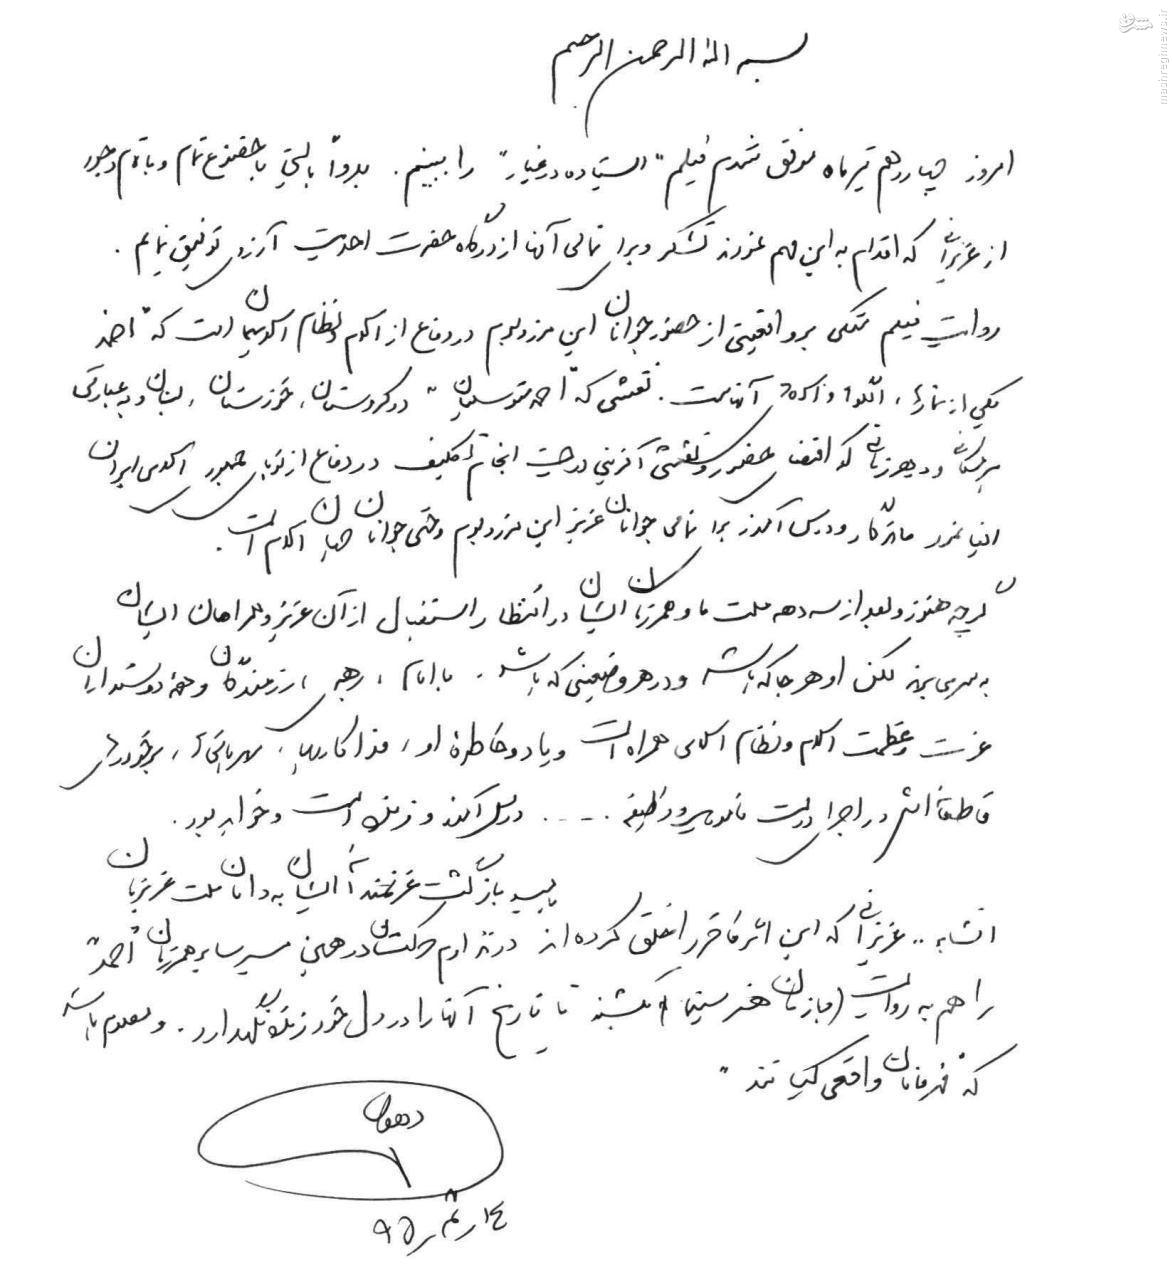 بسمه الله الرحمن الرحیم
امروز چهاردهم تیر ماه موفق شدم فیلم "ایستاده در غبار" را ببینم. بدواً بایستی با خضوع تمام و با تمام وجود
از عزیزانی که اقدام به این مهم نمودند تشکر و برای تمامی آنها از درگاه حضرت احدیت آرزوی توفیق نمایم.
روایت فیلم متکی بر واقعیتی از حضور جوانان این مرز و بوم در دفاع از اسلام و نظام اسلامیمان است که "احمد"
یکی از نمادها، الگوها و آنهاست. نقشی که "احمد متوسلیان" در کردستان، خوزستان، لبنان و به عبارتی
هر مکانی و در هر زمانی که اقتضای حضور و نقش آفرینی در جهت انجام تکلیف در دفاع از نوپای جمهوری اسلامی ایران
ایفا نمود ماندگار و درس آموز برای تمامی جوانان عزیز این مرز و بوم و حتی جوانان جهان اسلام است.
گرچه هنوز و بعد از سه دهه ملت ما و همرزمان ایشان در انتظار استقبال از آن عزیز و همراهان ایشان
به سر می‌برند لکن او هر جا که باشد و در هر وضعیتی که باشد، با امام، رهبری، رزمندگان و همه دوستداران
عزت و عظمت اسلام و نظام اسلامی همراه است و یاد و خاطره او، فداکاریها، مهربانی‌ها، برخوردهای
قاطعانه‌اش در اجرای درست مأموریت و وظیفه .... در دل آکنده و زنده است و خواهد بود.
به امید بازگشت عزتمندانه ایشان به دامان ملت عزیزمان
انشاءالله .. عزیزانی که این اثر فاخر را خلق کرده‌اند در تداوم حرکتشان در همین مسیر سایر همرزمان "احمد"
را هم به روایت (با زبان هنر سینما) بکشند تا تاریخ آنها را در دل خود زنده نگهدارد. و معلوم باشد
که "قهرمانان واقعی کیانند"
دهقان
۱۴ر تیر ر۹۵
mashreghnews.ir